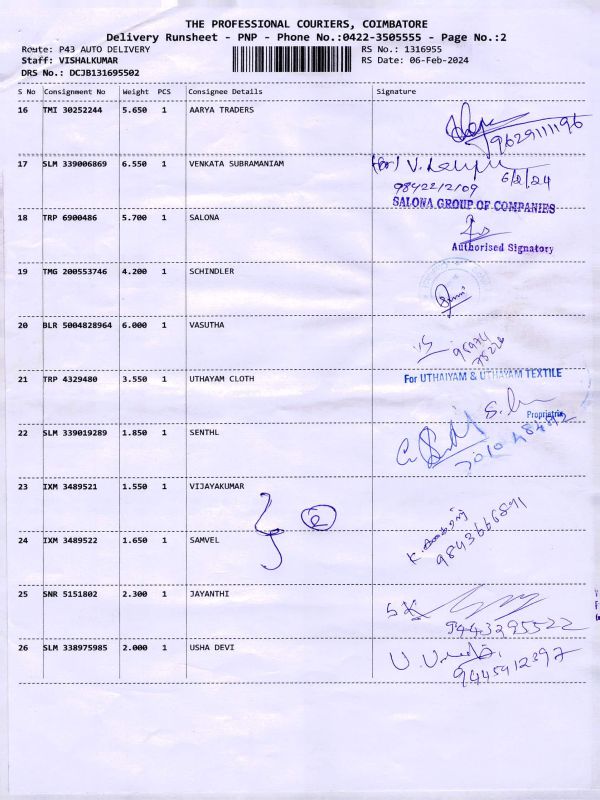 THE PROFESSIONAL COURIERS, COIMBATORE
Delivery Runsheet - PNP - Phone No.:0422-3505555 - Page No.:2
Route: P43 AUTO DELIVERY RS No.: 1316955
Staff: VISHALKUMAR RS Date: 06-Feb-2024
DRS No.: DCJB131695502
S No Consignment No Weight PCS Consignee Details Signature
16 TMI 30252244 5.650 1 AARYA TRADERS
9629111196
17 SLM 339006869 6.550 1 VENKATA SUBRAMANIAM
(for) V.
6/2/24
9842212109
SALONA GROUP OF COMPANIES
18 TRP 6900486 5.700 1 SALONA
Authorised Signatory
19 TMG 200553746 4.200 1 SCHINDLER
20 BLR 5004828964 6.000 1 VASUTHA
For UTHAIYAM & UTHAYAM TEXTILE
21 TRP 4329480 3.550 1 UTHAYAM CLOTH
22 SLM 339019289 1.850 1 SENTHL
23 IXM 3489521 1.550 1 VIJAYAKUMAR
2
24 IXM 3489522 1.650 1 SAMVEL
9843666891
25 SNR 5151802 2.300 1 JAYANTHI
9443295522
26 SLM 338975985 2.000 1 USHA DEVI
9445912397